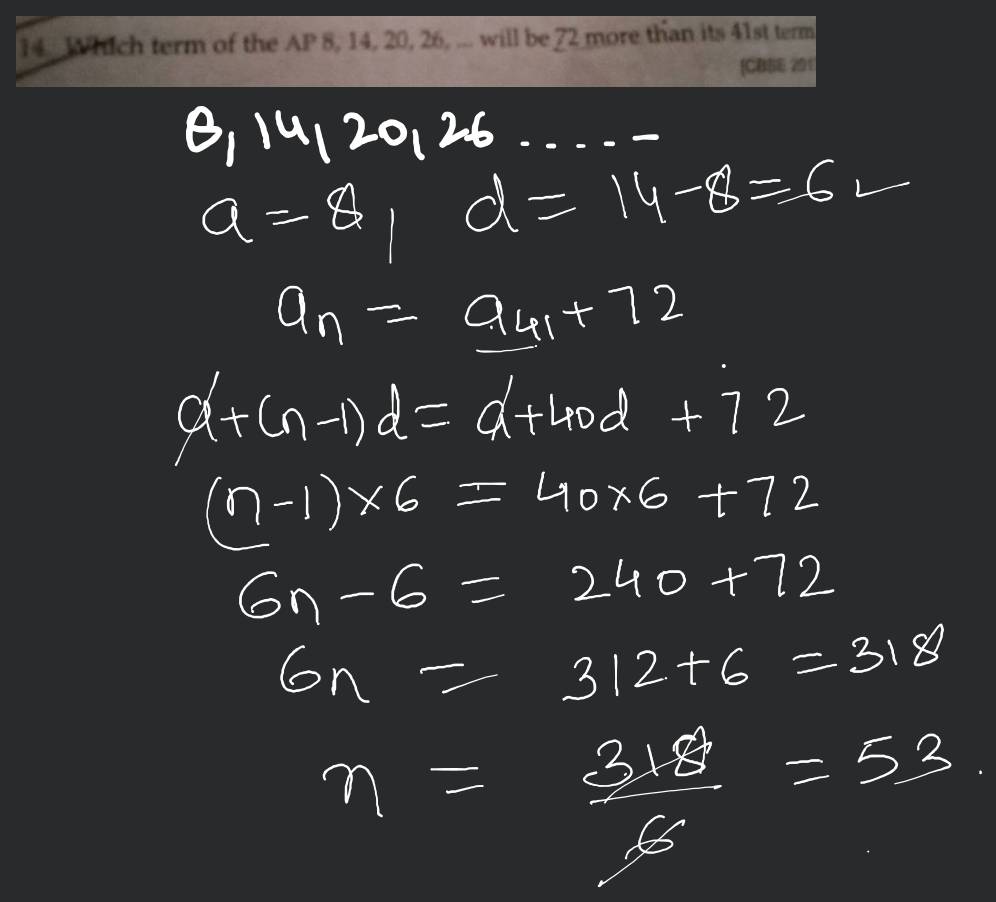 14. Which term of the AP 8, 14, 20, 26, ... will be 72 more than its 41st term
[CBSE 201
8, 14, 20, 26 . . . . . –
a = 8, d = 14 - 8 = 6
an = a41 + 72
a + (n-1) d = a + 40d + 72
(n-1) × 6 = 40×6 + 72
6n - 6 = 240 + 72
6n = 312 + 6 = 318
n = 318/6 = 53.